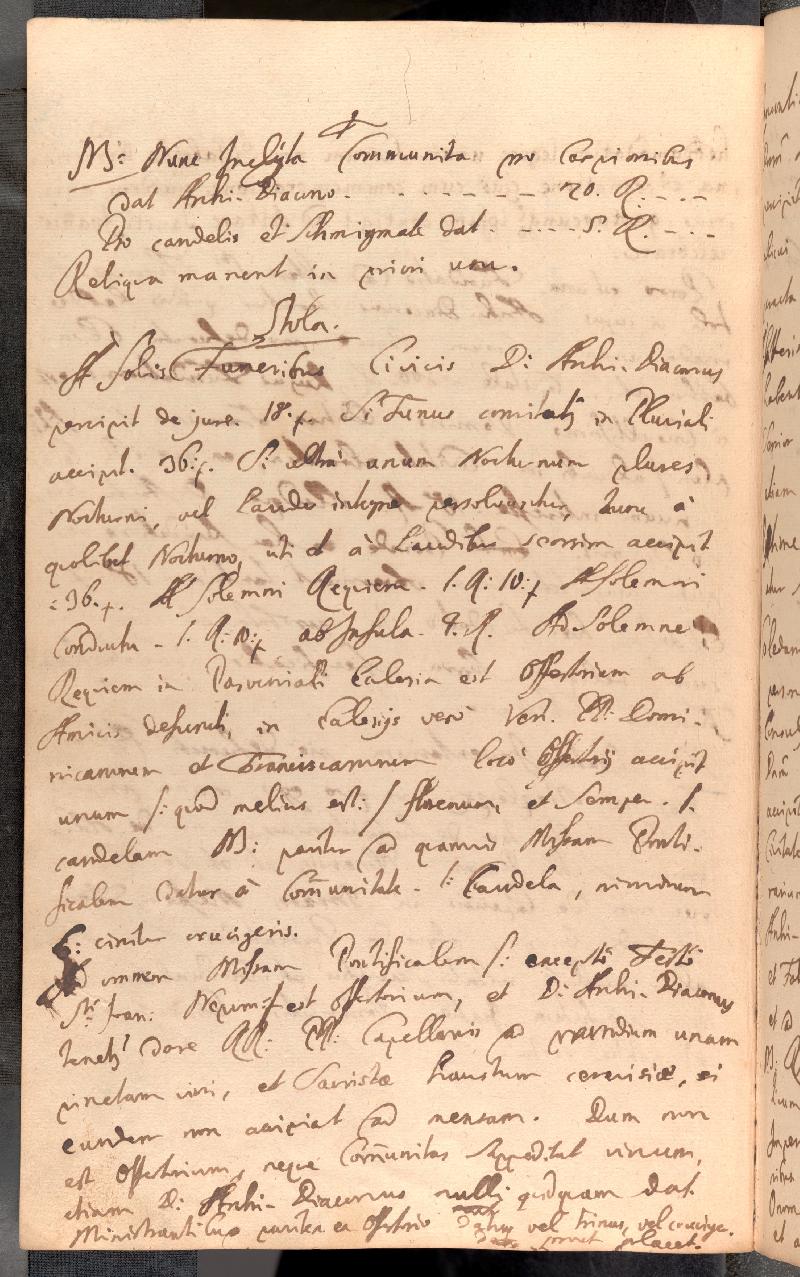 NB: Nunc Inclyta Communita pro Carpionibus
dat Archi-Diacono. - - - - - - 20. R. - . -
Pro candelis et Schmigmate dat. - - - - 5. R. - . -
Reliqua manent in priori usu.
Stola.
A Solis Funeribus Civicis D: Archi-Diaconus
percipit de jure. 18. x. Si Funus comitatur in Pluviali
accipit. 36: x. Si ultra unum Nocturnum plures
Nocturni, vel Laudes integre persolvuntur, tunc à
quolibet Nocturno, uti et à Laudibus seorsim accipit
: 36. x. A Solemni Requiem. 1. R: 10: x A Solemni
Conductu - 1. R: 10: x ab Infula. R. Ad Solemne
Requiem in Parochiali Ecclesia est Offertorium ab
Amicis defuncti, in Ecclesijs vero Ven. PP: Domi-
nicanorum et Franciscanorum loco Offertorij accipit
unum /: quod melius est: / florenum, et Semper. 1.
candelam NB: pariter ad quamvis Missam Ponti-
ficalem datur à Com̃unitate. 1: Candela,
crucigeris.
Ad omnem Missam Pontificalem /: excepto Festo
Sti: Joan: Nepom: est Offertorium, et D: Archi-Diaconus
tenetur dare RR: PP: Capellanis ad prandium unam
pinctam vini, et Sacristæ haustum cerevisiæ, si
eundem non accipiat ad mensam. Dum non
est Offertorium, neque Com̃unitas suppeditat vinum,
etiam D: Archi-Diaconus nulli quidquam dat.
Ministrantibus pariter ex Offertorio datur vel trinus, vel crucige.
prout placet.